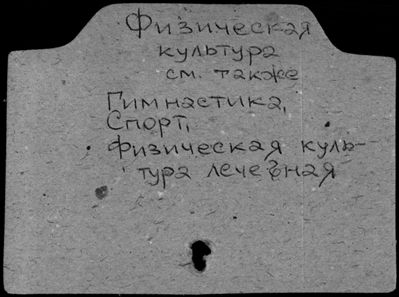 Физическая
культура
см. также
Гимнастика,
Спорт,
Физическая куль-
тура лечебная